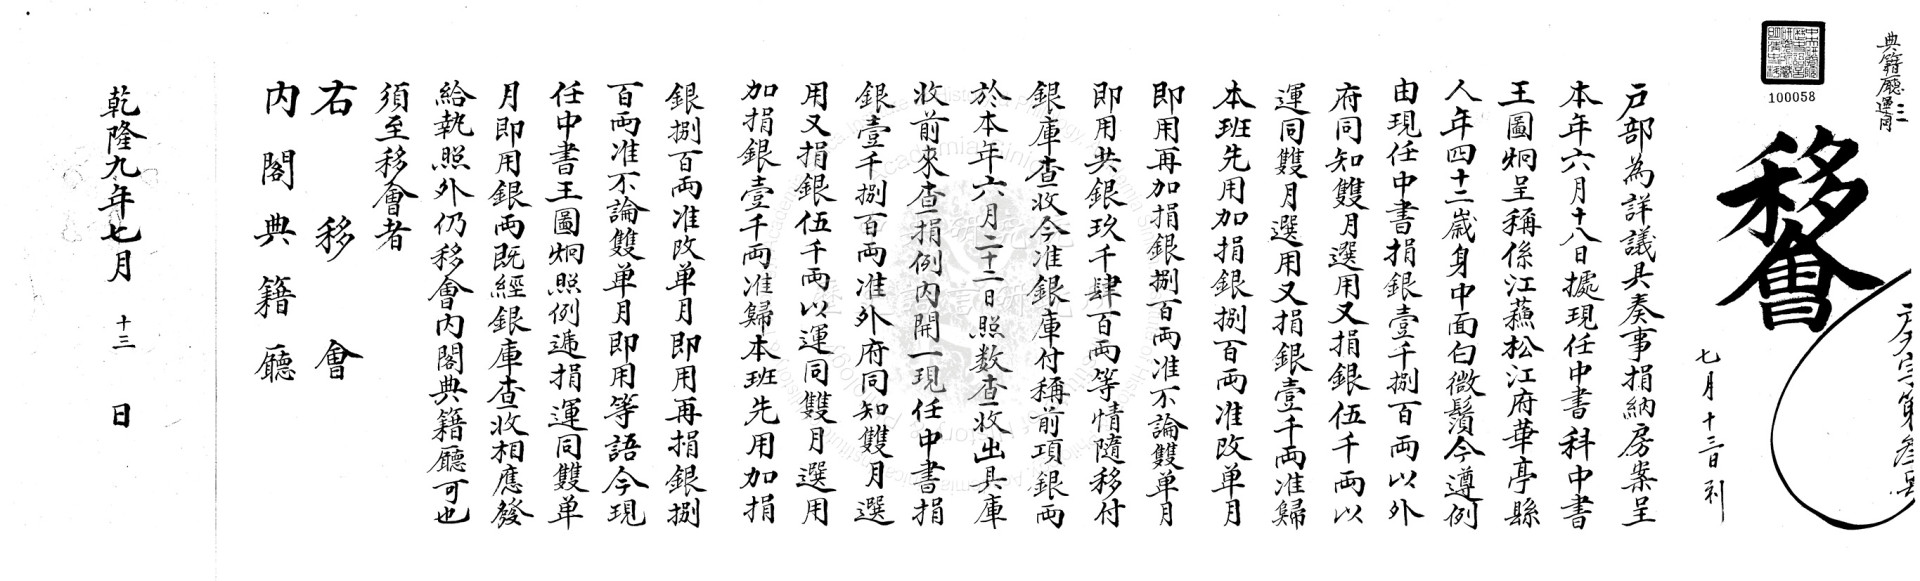 典籍廳
100058
移會
七月十三日到
戶部為詳議具奏事捐納房案呈
本年六月十八日據現任中書科中書
王圖炯呈稱係江蘓松江府華亭縣
人年四十二歲身中面白微鬚今遵例
由現任中書捐銀壹千捌百両以外
府同知雙月選用又捐銀伍千両以
運同雙月選用又捐銀壹千両准歸
本班先用加捐銀捌百両准改单月
即用再加捐銀捌百両准不論雙单月
即用共銀玖千肆百両等情隨移付
銀庫查收今准銀庫付稱前項銀両
於本年六月二十二日照数查收出具庫
收前來查捐例內開一現任中書捐
銀壹千捌百両准外府同知雙月選
用又捐銀伍千両以運同雙月選用
加捐銀壹千両准歸本班先用加捐
銀捌百両准改单月即用再捐銀捌
百両准不論雙单月即用等語今現
任中書王圖炯照例逓捐運同雙单
月即用銀両既經銀庫查收相應發
給執照外仍移會內閣典籍廳可也
須至移會者
右移會
內閣典籍廳
乾隆九年七月十三日